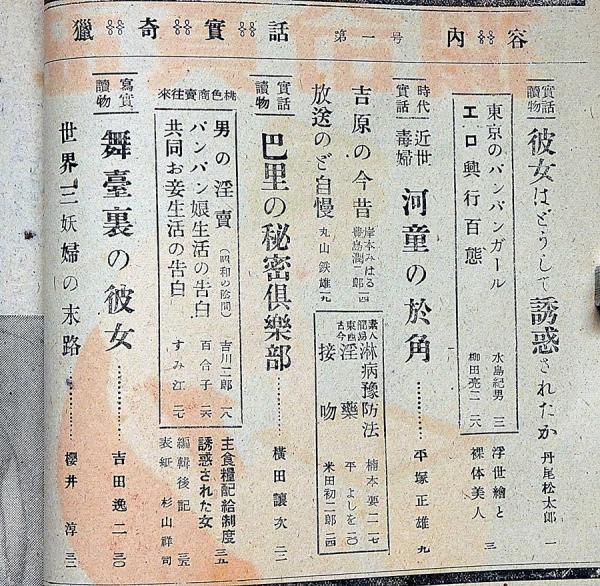 獵奇實話 第一号 内容
實話讀物 彼女はどうして誘惑されたか 丹尾松太郎 一
東京のパンパンガール 水島紀男 三
エロ興行百態 柳田亮二 二八
浮世繪と裸体美人 三
時代實話 近世毒婦 河童の於角 平塚正雄 九
吉原の今昔 岸本みはる 豊島潤二郎 一四
放送のど自慢 丸山鉄雄 一九
素人簡易 淋病豫防法 楠本要二 一七
東西古今 淫藥 平よしを 二〇
接吻 米田初二郎 二四
實話讀物 巴里の秘密倶樂部 横田讓次 二二
桃色商賣往來
男の淫賣(昭和の陰間) 吉川二郎 一八
パンパン娘生活の告白 百合子 二六
共同お妾生活の告白 すみ江 二七
主食糧配給制度 三五
誘惑された女
編輯後記 三五
表紙 杉山祥司
寫實讀物 舞臺裏の彼女 吉田逸二 三〇
世界三妖婦の末路 櫻井淳 三二